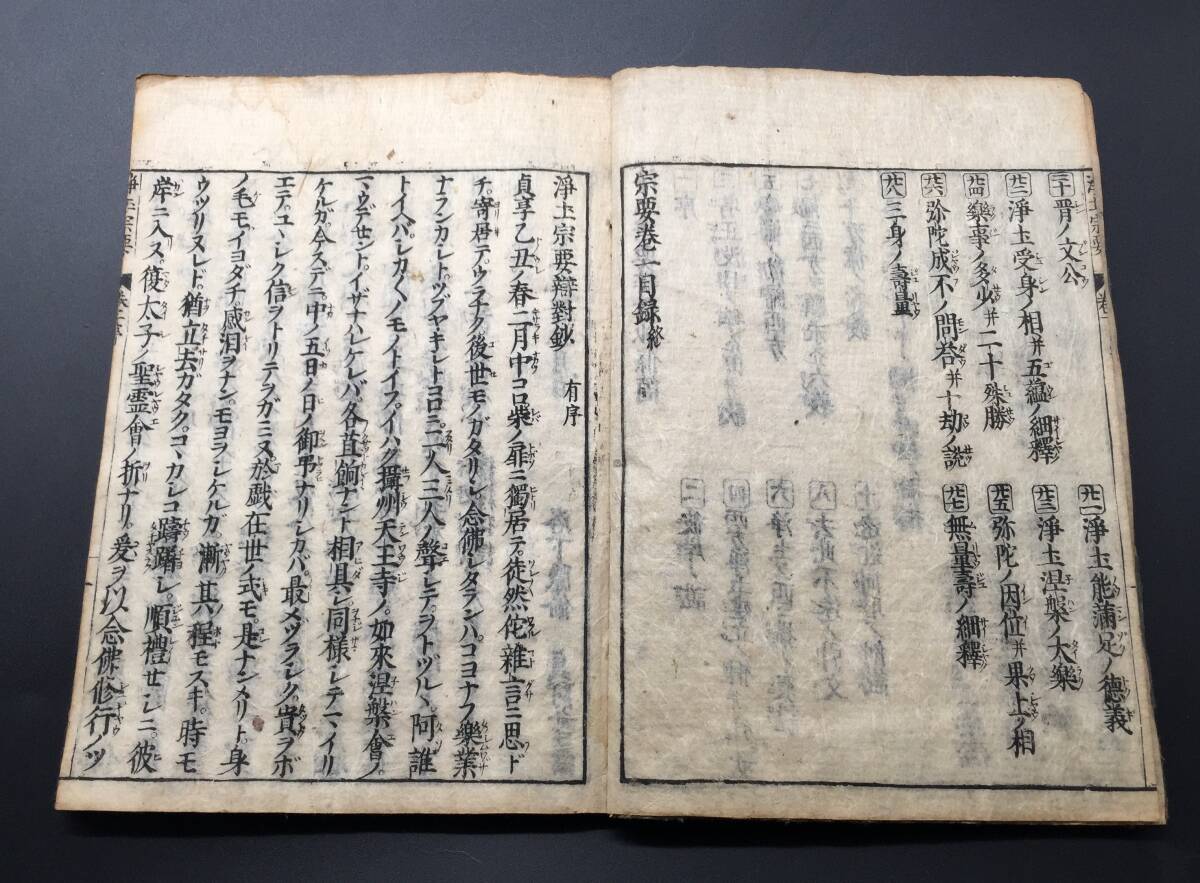 浄土宗要 卷一
三十 晋ノ文公
廿一 淨土能滿足ノ德義
廿二 淨土受身ノ相并五蘊ノ細釋
廿三 淨土涅槃ノ大樂
廿四 樂事ノ多少并二十殊勝
廿五 弥陀ノ因位并果上ノ相
廿六 弥陀成不ノ問答并十劫ノ說
廿七 無量壽ノ細釋
廿八 三身ノ壽量
宗要卷一目録終
淨土宗要辯對鈔 有序
貞享乙丑ノ春二月中コロ柴ノ扉ニ獨居テ徒然侘雜言ニ思ド
チ寄舁テウラチク後世モノガタリシ念佛シタランハコヨナフ樂業
ナランカシトツブヤキシトコロニ二人三人ノ聲シテヲトヅルヽ阿誰
トイヘバシカ〲ノモノトイフイハク攝州天王寺ノ如來涅槃會ノ
ニマウデセントイザナハレケレバ各苴餉ナント相具シ同様シテマイリ
ケルガ今スデニ中ノ五日ノ日ノ御弔ナリシカバ最メヅラシク貴ヲボ
エテユヽシク信ヲトリテヲガミヌ於戲在世ノ式モ是ナンメリト身
ノ毛モイヨダチ感泪ヲナンモヨヲシケルガ漸其ノ程モスギ時モ
ウツリヌレド猶立去ガタクコヽカシコ躊躇シ順禮セシニ彼
岸ニ入ヌ復太子ノ聖霊會ノ折ナリ爰ヲ以念佛修行ノツ